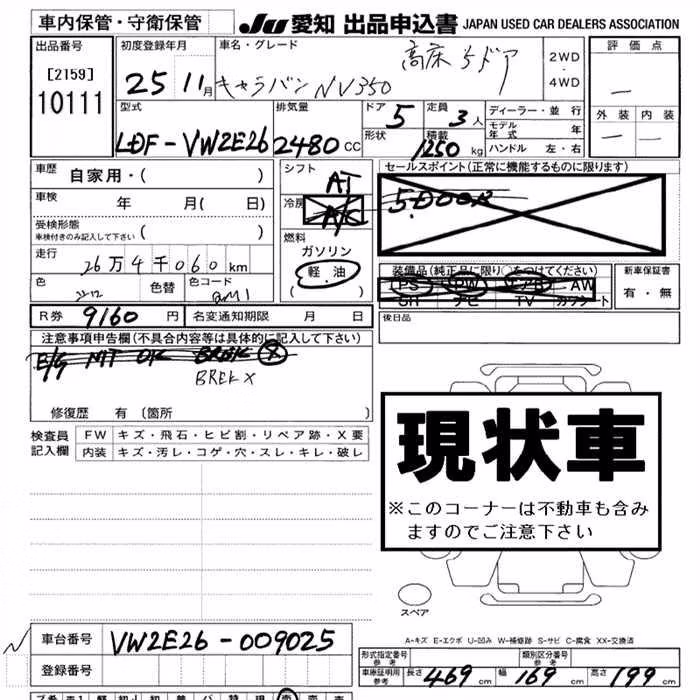 車内保管・守衛保管 JU 愛知 出品申込書 JAPAN USED CAR DEALERS ASSOCIATION
出品番号 初度登録年月 車名・グレード 高床 5ドア 2WD・4WD 評価点
[2159]
10111 25 11月 キャラバン NV350 —
型式 排気量 ドア 5 定員 3人 ディーラー・並行 外装 内装
LDF-VW2E26 2480cc 形状 積載 1250kg モデル年式 年 — —
ハンドル 左・右
車歴 自家用・( ) シフト AT セールスポイント(正常に機能するものに限ります)
車検 年 月( 日) 冷房 A/C 5DOOR
受検形態
車検付きのみ記入して下さい 燃料
走行 26万4千060km ガソリン
軽油 装備品(純正品に限り○をつけてください) 新車保証書
色 色替 色コード ( ) PS PW エアB AW 有・無
SH ナビ TV カワシート
R券 9160円 名変通知期限 月 日 後日品
注意事項申告欄(不具合内容等は具体的に記入して下さい)
E/G MT OK BREK X
BREK X
修復歴 有 [箇所 ]
検査員 FW キズ・飛石・ヒビ割・リペア跡・X要
記入欄 内装 キズ・汚レ・コゲ・穴・スレ・キレ・破レ
現状車
※このコーナーは不動車も含み
ますのでご注意下さい
スペア
A-キズ E-エクボ U-凹み W-補修跡 S-サビ C-腐食 XX-交換済
車台番号 VW2E26-009025
登録番号
形式指定番号 参考 類別区分番号 参考
車庫証明用 参考 長さ 469cm 幅 169cm 高さ 199cm